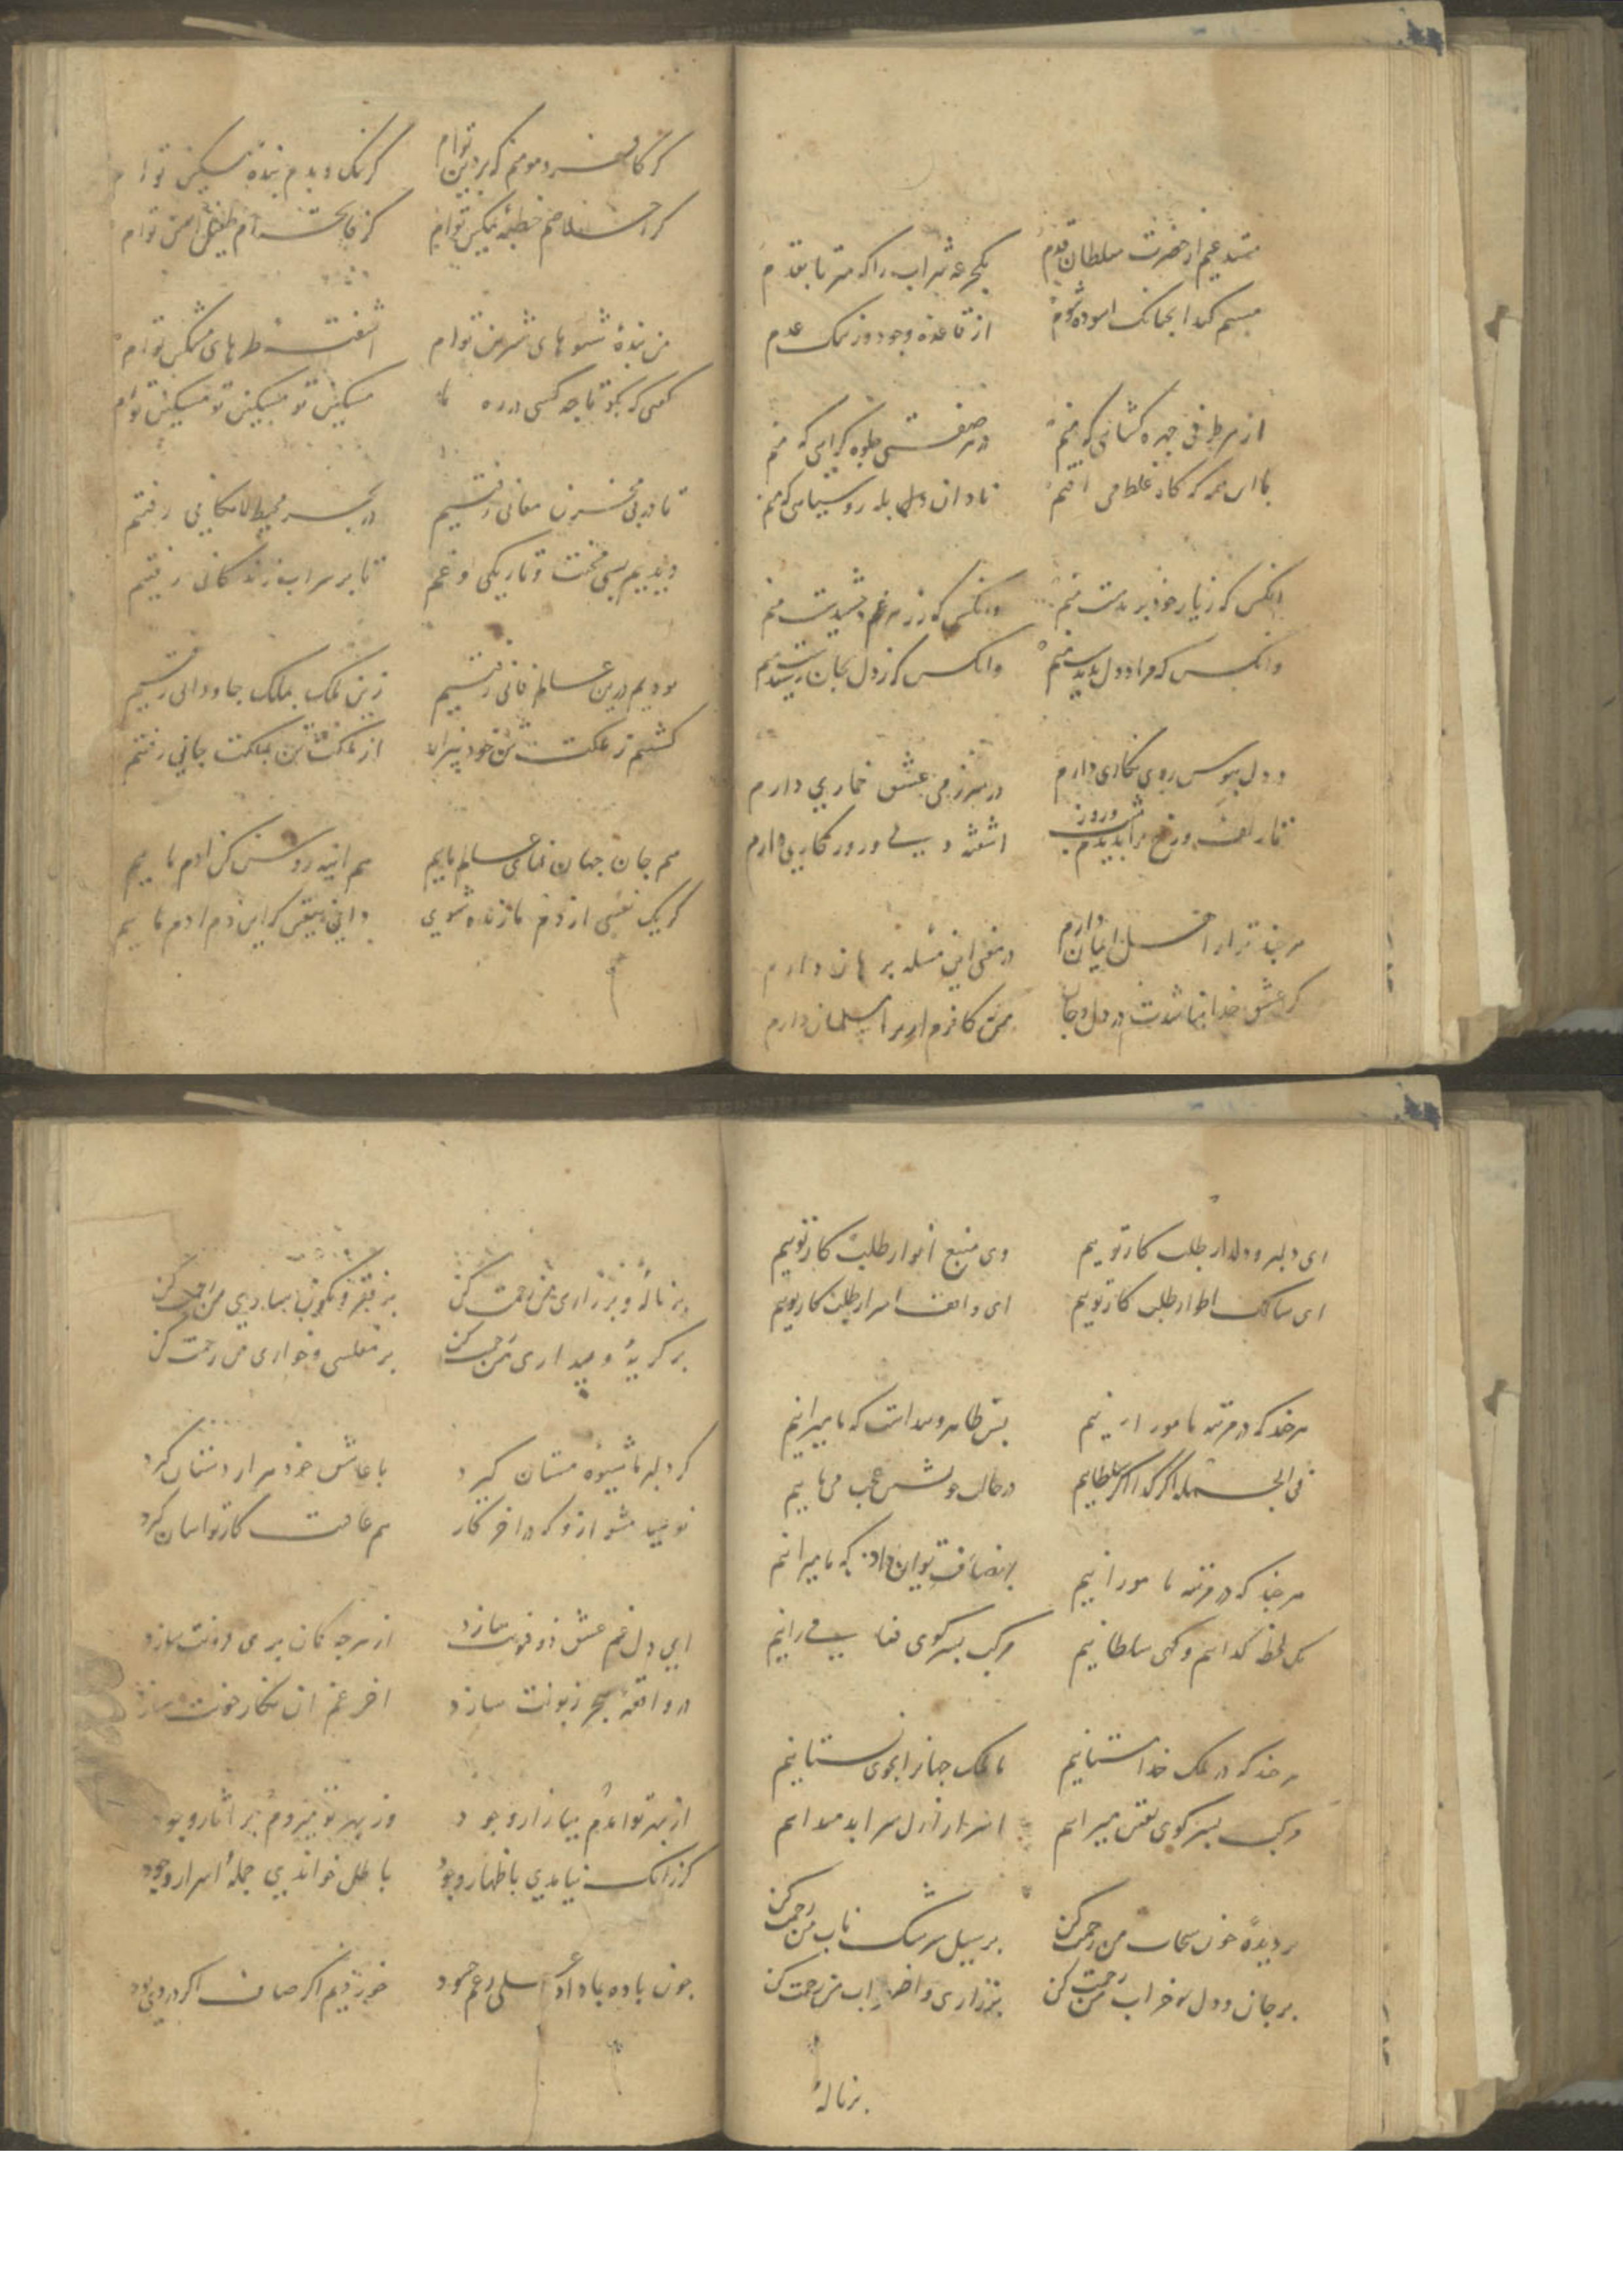 مستدعیم از حضرت سلطان قدم
یکجرعه شراب را که سر تا بقدم
مستم کند انچنانک اسوده شوم
از قاعده وجود وز ملک عدم
از هر طرفی چهره کشائی که منم
در هر صفتی جلوه گرائی که منم
با این همه که کاه غلط می افتم
نادان دل بله روستائی که منم
انکس که زیار خود بریدست منم
وانکس که ز هر غم چشیدست منم
وانکس که مراد دل ندیدست منم
وانکس که ز دل بجان رسیدست منم
در دل هوس روی نکاری دارم
در سر ز می عشق خماری دارم
تا زلف و رخ ترا بدیدم شب و روز
اشفته دلی و روزکاری دارم
هر چند ترا ز اهل ایمان دارم
در نفی این مسله برهان دارم
کر عشق خدا نباشدت در دل و جان
من کافرم ار ترا مسلمان دارم
کر کافر و مومنم که بر دین توام
کر نیک و بدم بنده مسکین توام
کز فاتحه ام طفیل امین توام
من بنده شیوهای شیرین توام
اشفته خط های مشکین توام
کفتی که بکو تا چه کسی در ره ما
مسکین تو مسکین تو مسکین توام
تا در پی مخزن معانی رفتیم
در بحر محیط لامکانی رفتیم
دیدیم بسی محنت و تاریکی و غم
تا بر سر اب زندکانی رفتیم
بودیم درین عالم فانی رفتیم
زین ملک بملک جاودانی رفتیم
کشتیم ز ملکت تن خود بیزار
از ملکت تن بملکت جانی رفتیم
هم جان جهان نمای عالم ماییم
هم اینه روشن کن ادم ماییم
کر یک نفسی از دم ما زنده شوی
دانی بیقین که این دم ادم ماییم
ای دلبر و دلدار طلب کار توییم
وی منبع انوار طلب کار توییم
ای سالک اطوار طلب کار توییم
ای واقف اسرار طلب کار توییم
هر چند که در مرتبه ما مورانیم
پس ظاهر و پیداست که ما میرانیم
فی الجمله اکر کدا اکر سلطانیم
در حالت خویش عجب می مانیم
هر چند که در مرتبه ما مورانیم
انصاف توان داد که ما میرانیم
یک لحظه کدائیم و کهی سلطانیم
مرکب بسر کوی فنا می رانیم
هر چند که در ملک خدا بستانیم
ما ملک جهان را بجوی نستانیم
مرکب بسر کوی یقین میرانیم
اسرار ازل سر ابد میدانیم
بر دیده خون من رحمت کن
بر سیل سرشک ناب من رحمت کن
بر جان و دل خراب من رحمت کن
بر زاری و اضطراب من رحمت کن
بر ناله
بر ناله و بر زاری من رحمت کن
بر فقر و نکونساری من رحمت کن
بر کریه و بیداری من رحمت کن
بر مفلسی و خواری من رحمت کن
کر دلبر ما شیوه مستان کیرد
با عاشق خود هزار دستان کیرد
نومید مشو ازو که در اخر کار
هم عاقبت کار تو اسان کیرد
ای دل غم عشق ذو فنونت سازد
از هرچه کمان بری فزونت سازد
در واقعه هجر زبونت سازد
اخر غم ان نکار خونت سازد
از بهر تو امدم ببازار وجود
وز بهر تو میروم بر اثار وجود
کر زانک نیامدی باظهار وجود
باطل خواندیی جمله اسرار وجود
چون باده باد داد
خوردیم اکر صاف اکر دردی بود